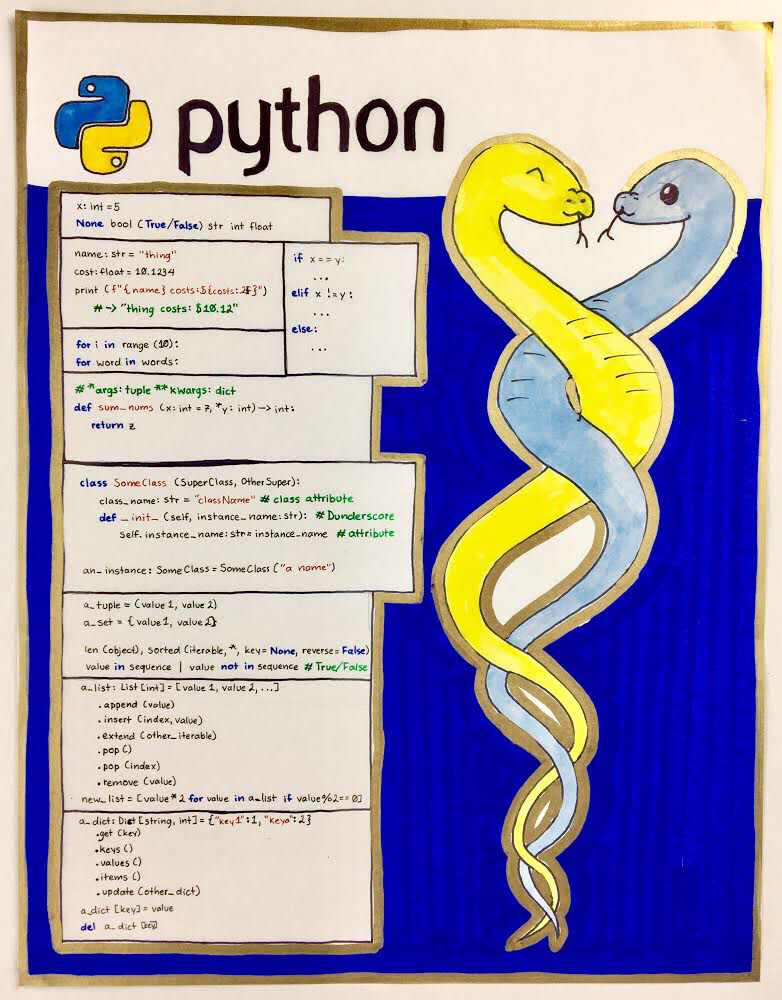 python
x: int = 5
None bool (True/False) str int float
name: str = "thing"
cost: float = 10.1234
print (f"{name} costs:${costs:.2f}")
# -> "thing costs: $10.12"
if x == y:
...
elif x != y:
...
else:
...
for i in range (10):
for word in words:
# *args: tuple ** kwargs: dict
def sum_nums (x: int = 7, *y: int) -> int:
return z
class SomeClass (SuperClass, OtherSuper):
class_name: str = "className" # class attribute
def _init_ (self, instance_name: str): # Dunderscore
self.instance_name: str = instance_name # attribute
an_instance: SomeClass = SomeClass ("a name")
a_tuple = (value 1, value 2)
a_set = {value 1, value 2}
len (object), sorted (iterable, *, key= None, reverse= False)
value in sequence | value not in sequence # True/False
a_list: List [int] = [value 1, value 2, ...]
.append (value)
.insert (index, value)
.extend (other_iterable)
.pop ()
.pop (index)
.remove (value)
new_list = [value * 2 for value in a_list if value % 2 == 0]
a_dict: Dict [string, int] = {"key1": 1, "keya": 2}
.get (key)
.keys ()
.values ()
.items ()
.update (other_dict)
a_dict [key] = value
del a_dict [key]